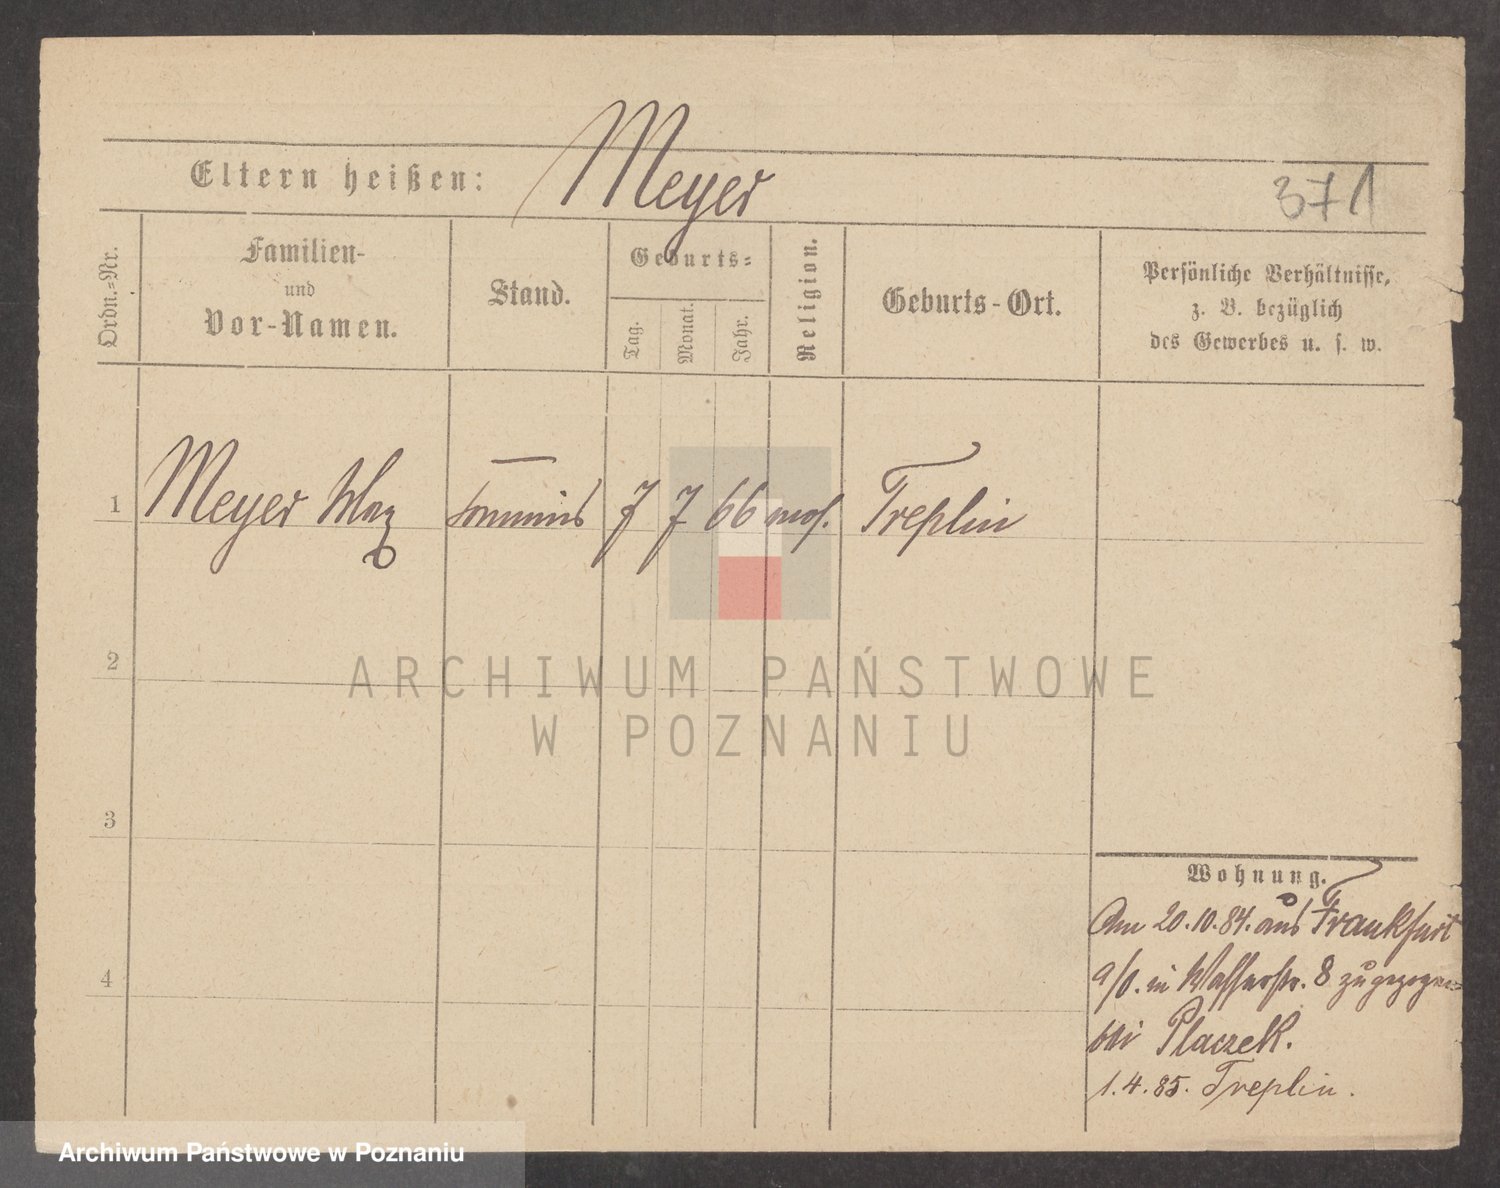 Meyer
Eltern heißen:
371
Ordn.=Nr.
Familien-
und
Vor-Namen.
Stand.
Geburts=
Tag.
Monat.
Jahr.
Religion.
Geburts-Ort.
Persönliche Verhältnisse,
z. B. bezüglich
des Gewerbes u. s. w.
1 Meyer Max Commis 7 7 66 mos. Treplin
2
3
4
ARCHIWUM PAŃSTWOWE
W POZNANIU
Wohnung.
Am 20.10.84. aus Frankfurt
a/O. in Wasserstr. 8 zugezogen
bei Placzek.
1.4.85. Treplin.
Archiwum Państwowe w Poznaniu